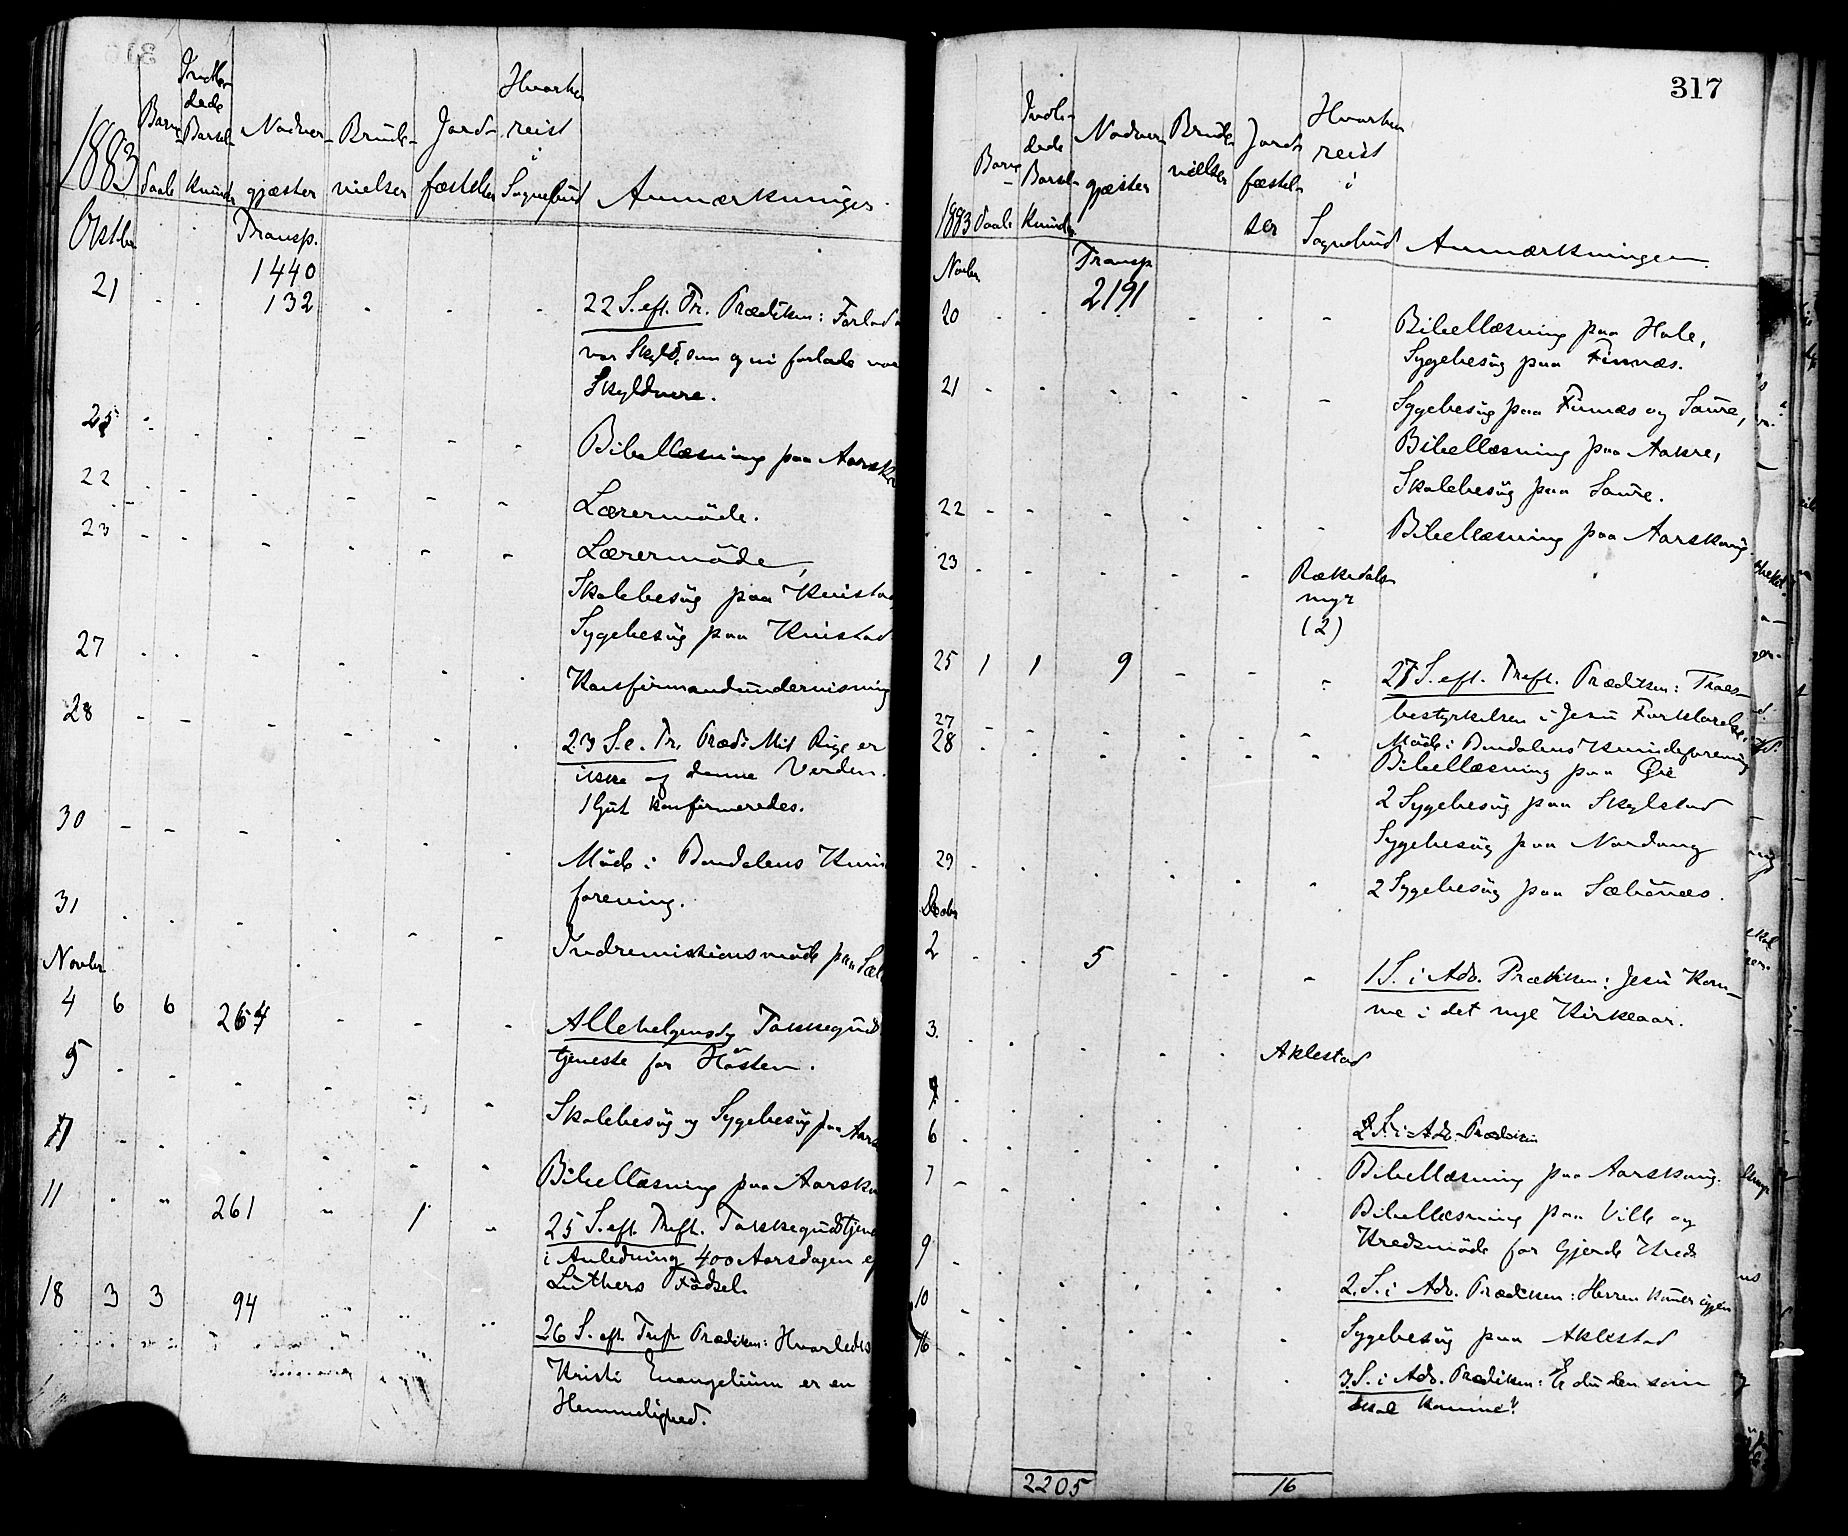 1883 Barne- Indle- Nadver- Brude- Jord- Hvorhen Anmærkninger.
daab dede gjæster vielser fæstelser reist
Barsel- i
kvinder Sognebud
Octbr Transp.
1440
21 - - 132 - - - 22 S. eft. Tr. Prædiken: Forlad os
vor Skyld, som og vi forlade vore
Skyldnere.
25 - - - - - - Bibellæsning paa Aarsk
22 - - - - - - Lærermöde.
23 - - - - - - Lærermöde,
Skolebesög paa Kvistad
Sygebesög paa Kvistad
27 - - - - - - Konfirmandundervisning
28 - - - - - - 23 S. e. Tr. Præd: Mit Rige er
ikke af denne Verden.
1 Gut konfirmeredes.
30 - - - - - - Möde i Bondalens Kvin
forening.
31 - - - - - - Indremissionsmöde paa Sæb
Novbr
4 6 6 264 - - - Allehelgensdg Takkeguds
tjeneste for Hösten.
5 - - - - - - Skolebesög og Sygebesög paa Aars
7 - - - - - - Bibellæsning paa Aarskv
11 - - 261 - 1 - 25 S. eft. Tref. Takkegudstjene
i Anledning 400 Aarsdagen af
Luthers Födsel.
18 3 3 94 - - - 26 S. eft. Tref. Prædiken: Hvorledes
Kristi Evangelium er en
Hemmelighed.
317
1883 Barne- Indle- Nadver- Brude- Jord- Hvorhen Anmærkninger.
daab dede gjæster vielser fæstel- reist
Barsel- ser i
kvinder Sognebud
Novbr Transp
2191
20 - - - - - Bibellæsning paa Hole,
Sygebesög paa Finnæs.
21 - - - - - - Sygebesög paa Finnæs og Saure,
Bibellæsning paa Aakre,
Skolebesög paa Saure.
22 - - - - - - Bibellæsning paa Aarskaug
23 - - - - - Rækedals-
myr
(2)
25 1 1 9 - - - 27 S. eft. Tref. Prædiken: Troes-
bestyrkelsen i Jesu Forklarelse.
27 - - - - - - Möde i Bondalens Kvindeforening
28 - - - - - - Bibellæsning paa Øie
2 Sygebesög paa Skylstad
Sygebesög paa Nordang
29 - - - - - - 2 Sygebesög paa Sæbönæs.
Decbr
2 - - 5 - - - 1 S. i Adv. Prædiken: Jesu Kom-
me i det nye Kirkeaar.
3. - - - - - Aklestad
2 S. i Adv. Prædiken
6 - - - - - - Bibellæsning paa Aarskaug.
7 - - - - - - Bibellæsning paa Ville og
Kredsmöde for Gjerde Kreds
9 - - - - - - 2. S. i Adv. Prædiken: Herren kommer igjen
10 - - - - - - Sygebesög paa Aklestad
16 - - - - - - 3. S. i Adv. Prædiken: Er du den som
skal komme?"
2205 16